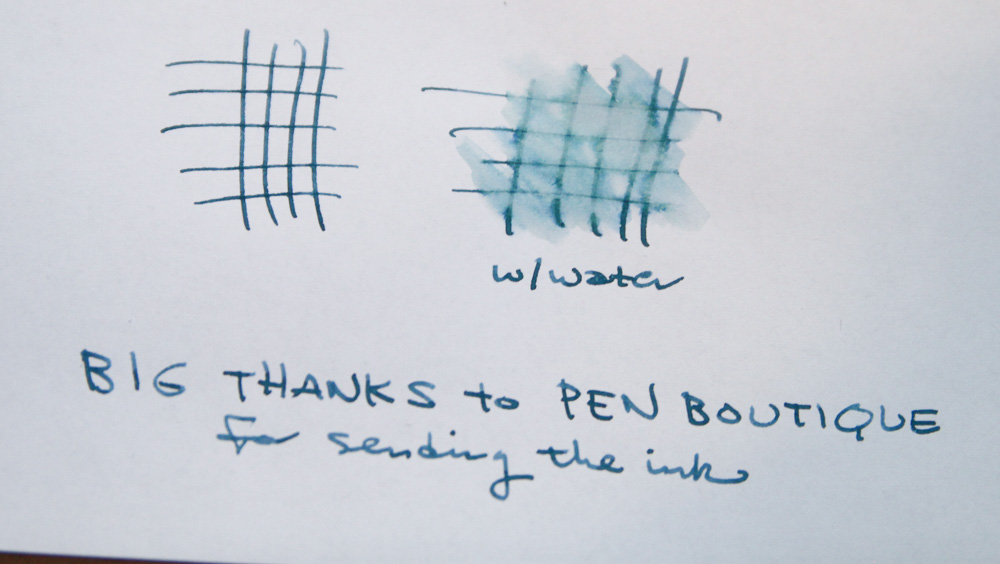 w/water
BIG THANKS to PEN BOUTIQUE
for sending the ink